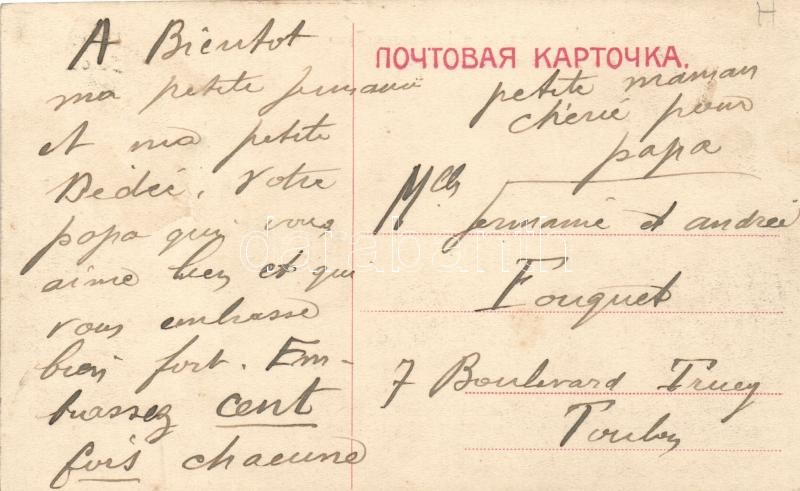 A Bientot
ma petite Germaine
et ma petite
Dédée. Votre
papa qui vous
aime bien et qui
vous embrasse
bien fort. Em-
brassez cent
fois chacune
petite maman
chérie pour
papa
ПОЧТОВАЯ КАРТОЧКА.
Mlles
Germaine et andrée
Fouquet
7 Boulevard Trucy
Toulon
darabanth
H